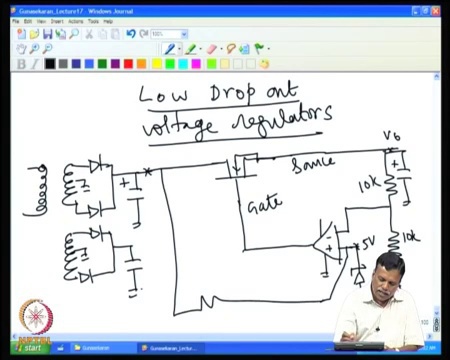 Gunasekaran_Lecture17 - Windows Journal
File Edit View Insert Actions Tools Help
100%
B I
Low Drop out
voltage regulators
Vo
Source
10k
Gate
+
+
+
5V
10k
start
Gunasekaran
Gunasekaran_Lectu...